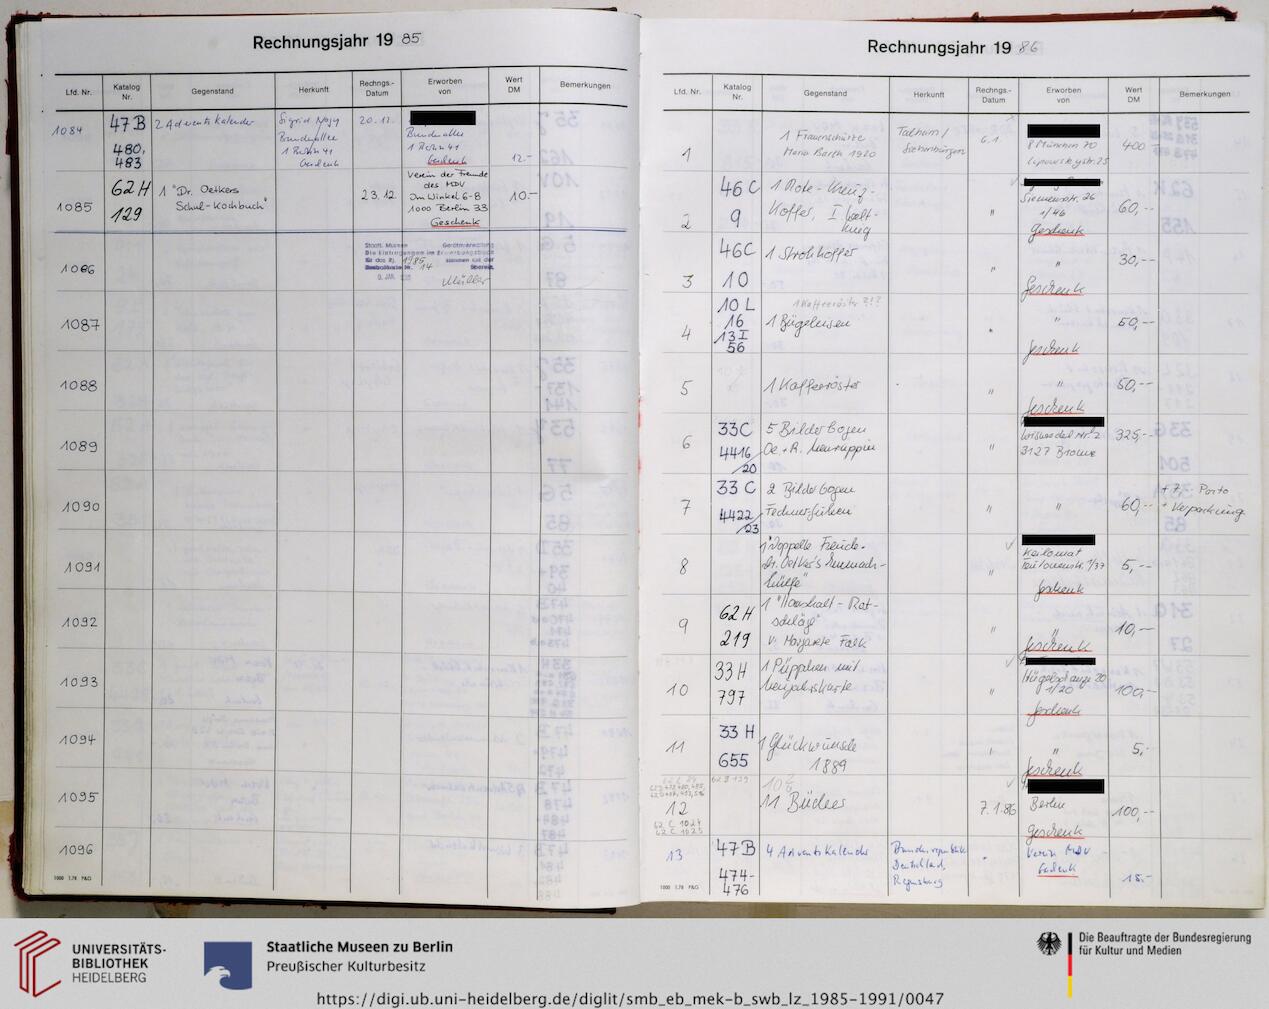 Rechnungsjahr 19 85
Lfd. Nr.
Katalog Nr.
Gegenstand
Herkunft
Rechngs.-Datum
Erworben von
Wert DM
Bemerkungen
1084
47 B
480,
483
2 Adventskalender
20.12.
1 Berlin 41
12.-
1085
62 H
129
1 "Dr. Oetkers
Schul-Kochbuch"
23.12.
Verein der Freunde
des MDV
Im Winkel 6-8
1000 Berlin 33
Geschenk
10.-
1086
Staatl. Museen
Die Eintragungen im Erwerbungsbuch
1985
14
Müller
1087
1088
1089
1090
1091
1092
1093
1094
1095
1096
1000 1.78 P&G
Rechnungsjahr 19 86
Lfd. Nr.
Katalog Nr.
Gegenstand
Herkunft
Rechngs.-Datum
Erworben von
Wert DM
Bemerkungen
1
1 Frauenschürze
Maria Barth 1920
Talheim/
Siebenbürgen
6.1.
8 München 70
400
2
46 C
9
1 Rote-Kreuz-
Koffer, I. Welt-
krieg
"
1/46
Geschenk
60,--
3
46 C
10
1 Strohkoffer
"
"
Geschenk
30,--
4
10 L
16
13 I
56
1 Kaffeeröster ?!?
1 Bügeleisen
"
"
Geschenk
50,--
5
1 Kaffeeröster
"
"
Geschenk
50,--
6
33 C
4416
/20
5 Bilderbogen
Oe. + R. Neuruppin
"
3127 Brome
325,--
7
33 C
4422
/23
2 Bilderbogen
"
"
60,--
+ 7,- Porto
+ Verpackung
8
1 "Doppelte Freude.
Dr. Oetker's Einmach-
hülfe"
"
Geschenk
5,--
9
62 H
219
1 "Haushalt-Rat-
schläge"
v. Margarete Falk
"
"
Geschenk
10,--
10
33 H
797
1 Püppchen mit
Neujahrskarte
"
1/20
Geschenk
100,--
11
33 H
655
1 Glückwünsche
1889
"
"
Geschenk
5,-
12
62 C 1024
62 C 1025
11 Bücher
7.1.86
Berlin
Geschenk
100,--
13
47 B
474-
476
4 Adventskalender
Bundesrepublik
Deutschland,
Regensburg
"
Verein MDV
Geschenk
18.-
1000 1.78 P&G
UNIVERSITÄTS-
BIBLIOTHEK
HEIDELBERG
Staatliche Museen zu Berlin
Preußischer Kulturbesitz
Die Beauftragte der Bundesregierung
für Kultur und Medien
https://digi.ub.uni-heidelberg.de/diglit/smb_eb_mek-b_swb_lz_1985-1991/0047